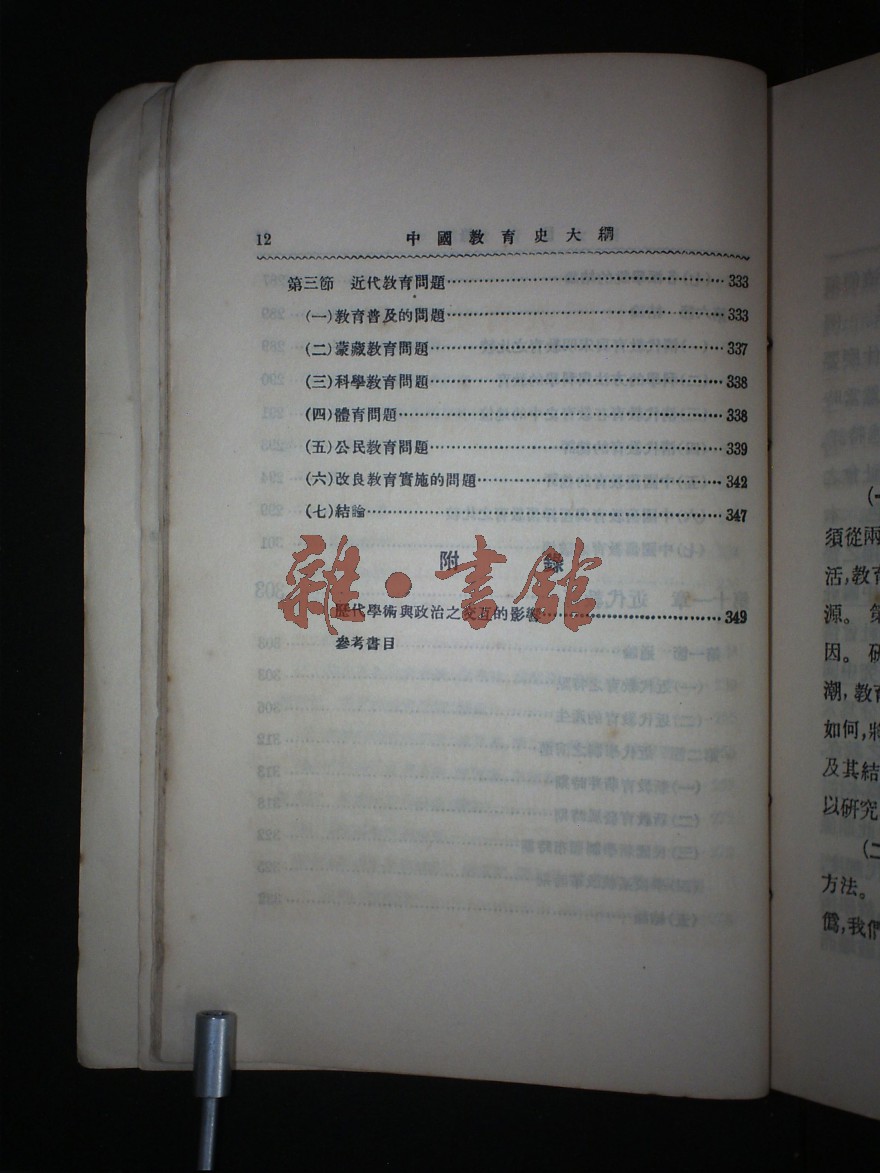 12 中國教育史大綱
第三節 近代教育問題……333
(一)教育普及的問題……333
(二)蒙藏教育問題……337
(三)科學教育問題……338
(四)體育問題……338
(五)公民教育問題……339
(六)改良教育實施的問題……342
(七)結論……347
附錄
歷代學術與政治之交互的影響……349
參考書目
雜·書館
須從兩
活,教育
源。 第
因。 研
潮,教育
如何,將
及其結
以研究
方法。
僞,我們